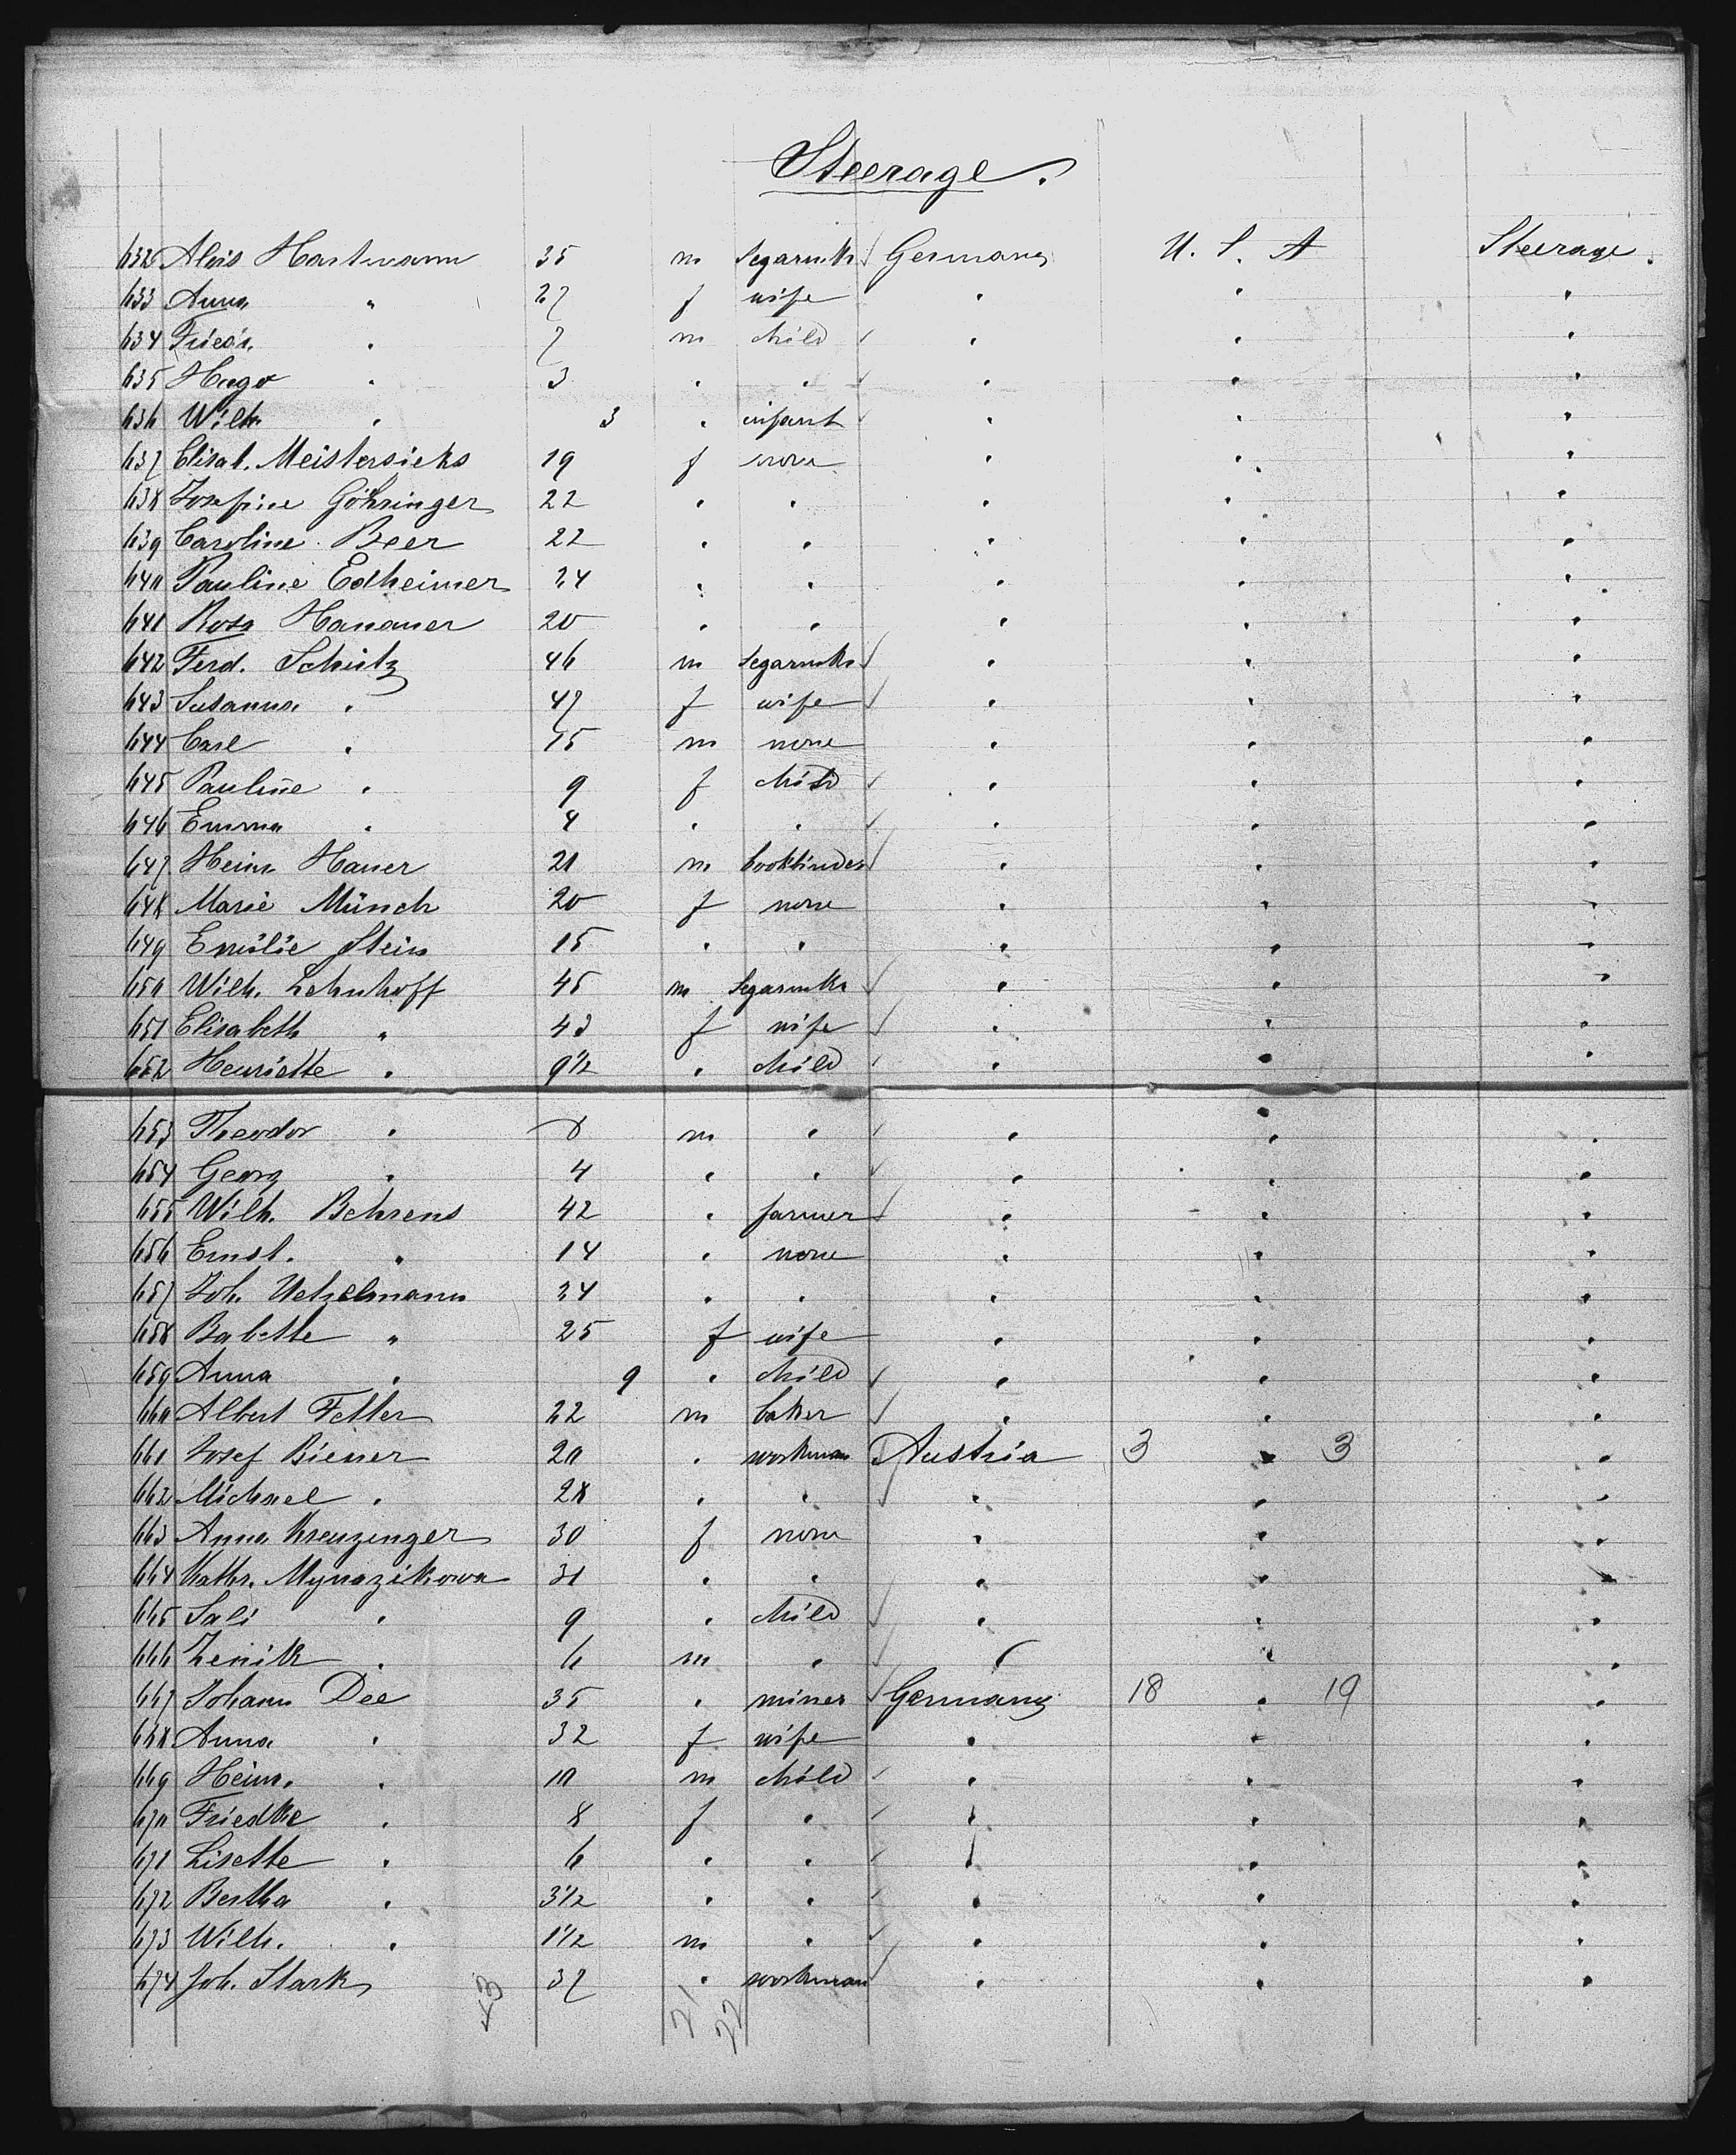 Steerage.
632 Alois Hartmann 35 m Segarmkr Germany U. S. A Steerage.
633 Anna " 27 f wife " " "
634 Friedr. " 7 m child " " "
635 Hugo " 3 " " " " "
636 Wilh. " 3 " infant " " "
637 Elisab. Meistersieks 19 f none " " "
638 Josefine Göhringer 22 " " " " "
639 Caroline Beer 22 " " " " "
640 Pauline Edheimer 24 " " " " "
641 Rosa Hanauer 20 " " " " "
642 Ferd. Schütz 46 m Segarmkr " " "
643 Susanna " 47 f wife " " "
644 Carl " 15 m none " " "
645 Pauline " 9 f child " " "
646 Emma " 4 " " " " "
647 Heinr. Hauer 21 m bookbinder " " "
648 Marie Münch 20 f none " " "
649 Emilie Stein 15 " " " " "
650 Wilh. Lehnhoff 45 m Segarmkr " " "
651 Elisabeth " 43 f wife " " "
652 Henriette " 9 1/2 " child " " "
653 Theodor " 8 m " " " "
654 Georg " 4 " " " " "
655 Wilh. Behrens 42 " farmer " " "
656 Ernst. " 14 " none " " "
657 Joh. Uetzelmann 24 " " " " "
658 Babette " 25 f wife " " "
659 Anna " 9 " child " " "
660 Albert Fetter 22 m baker " " "
661 Josef Biener 20 " workman Austria 3 " 3 "
662 Michael " 28 " " " " "
663 Anna Kreuzenger 30 f none " " "
664 Kathr. Mynazikowa 31 " " " " "
665 Sali " 9 " child " " "
666 Zenik " 6 m " " " "
667 Johann Dee 35 " miner Germany 18 " 19 "
668 Anna " 32 f wife " " "
669 Heinr. " 10 m child " " "
670 Friedke " 8 f " " " "
671 Lisette " 6 " " " " "
672 Bertha " 3 1/2 " " " " "
673 Wilh. " 1 1/2 m " " " "
674 Joh. Stark 37 " workman " " "
43 21 22